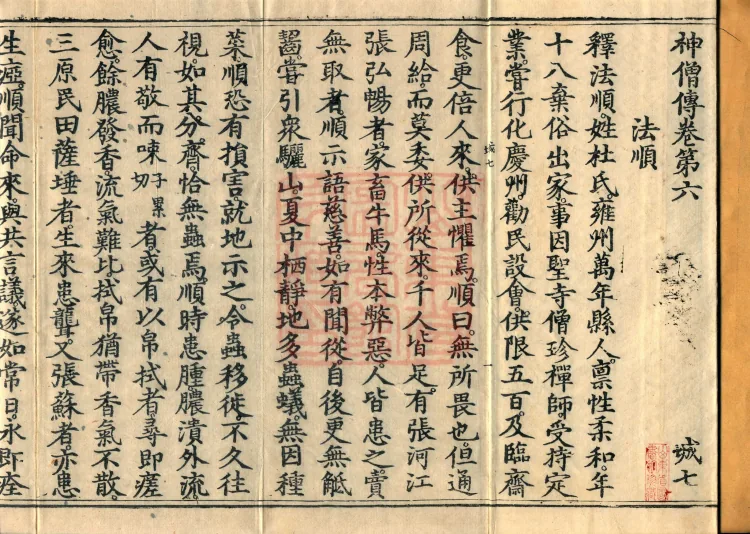 神僧傳卷第六 城七
法順
釋法順。姓杜氏。雍州萬年縣人。禀性柔和。年
十八棄俗出家。事因聖寺僧珍禪師。受持定
業。嘗行化慶州。勸民設會。供限五百。及臨齋
城七
食。更倍人來。供主懼焉。順曰。無所畏也。但通
周給。而莫委供所從來。千人皆足。有張河江
張弘暢者。家畜牛馬。性本弊惡。人皆患之。賣
無取者。順示語慈善。如有聞從。自後更無觝
齧。嘗引衆驪山。夏中栖靜。地多蟲蟻。無因種
菜。順恐有損害。就地示之。令蟲移徙。不久往
視。如其分齊。恰無蟲焉。順時患腫。膿潰外流。
人有敬而㖒子累切者。或有以帛拭者。尋即瘥
愈。餘膿發香。流氣難比。拭帛猶帶香氣不散。
三原民田薩埵者。生來患聾。又張蘇者。亦患
生瘂。順聞命來。與共言議。遂如常日。永即痊